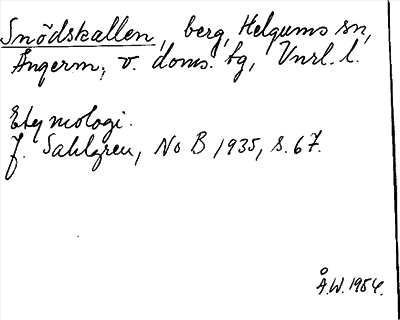 Snödskallen, berg, Helgums sn,
Ångerm, v. doms. bg, Vnrl. l.
Etymologi.
J. Sahlgren, No B 1935, s. 67.
Å.W. 1954.